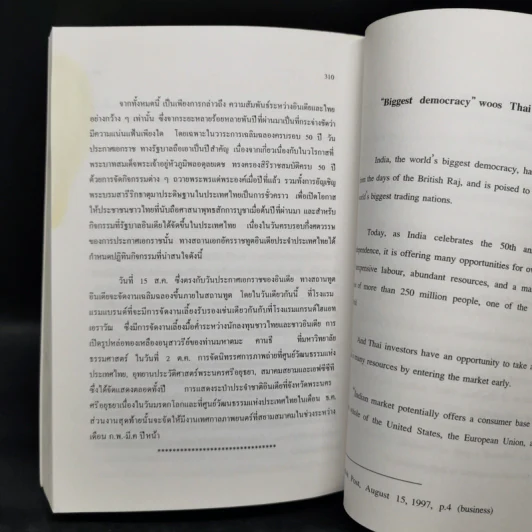 310
จากทั้งหมดนี้ เป็นเพียงการกล่าวถึง ความสัมพันธ์ระหว่างอินเดียและไทย
อย่างกว้าง ๆ เท่านั้น ซึ่งจากระยะหลายร้อยหลายพันปีที่ผ่านมาเป็นที่กระจ่างชัดว่า
มีความแน่นแฟ้นเพียงใด โดยเฉพาะในวาระการเฉลิมฉลองครบรอบ 50 ปี วัน
ประกาศเอกราช ทางรัฐบาลถือเอาเป็นปีสำคัญ เนื่องจากเกี่ยวเนื่องกับในวโรกาสที่
พระบาทสมเด็จพระเจ้าอยู่หัวภูมิพลอดุลยเดช ทรงครองสิริราชสมบัติครบ 50 ปี
ด้วยการจัดกิจกรรมต่าง ๆ ถวายพระพรแด่พระองค์เมื่อปีที่แล้ว รวมทั้งการอัญเชิญ
พระบรมสารีริกธาตุมาประดิษฐานในประเทศไทยเป็นการชั่วคราว เพื่อเปิดโอกาส
ให้ประชาชนชาวไทยที่นับถือศาสนาพุทธสักการบูชาเมื่อต้นปีที่ผ่านมา และสำหรับ
กิจกรรมที่รัฐบาลอินเดียได้จัดขึ้นในประเทศไทย เนื่องในวันครบรอบกึ่งศตวรรษ
ของการประกาศเอกราชนั้น ทางสถานเอกอัครราชทูตอินเดียประจำประเทศไทยได้
กำหนดปฏิทินกิจกรรมที่น่าสนใจดังนี้
วันที่ 15 ส.ค. ซึ่งตรงกับวันประกาศเอกราชของอินเดีย ทางสถานทูต
อินเดียจะจัดงานเฉลิมฉลองขึ้นภายในสถานทูต โดยในวันเดียวกันนี้ ที่โรงแรม
แรมแบรนด์ที่จะมีการจัดงานเลี้ยงรับรองเช่นเดียวกันกับที่โรงแรมแกรนด์ไฮแอท
เอราวัณ ซึ่งมีการจัดงานเลี้ยงมื้อค่ำระหว่างนักลงทุนชาวไทยและชาวอินเดีย การ
เปิดรูปหล่อทองเหลืองอนุสาวรีย์ของท่านมหาตมะ คานธี ที่มหาวิทยาลัย
ธรรมศาสตร์ ในวันที่ 2 ต.ค. การจัดนิทรรศการภาพถ่ายที่ศูนย์วัฒนธรรมแห่ง
ประเทศไทย, อุทยานประวัติศาสตร์พระนครศรีอยุธยา, สมาคมสยามและเอฟซีซีที
ซึ่งได้จัดแสดงตลอดทั้งปี การแสดงระบำประจำชาติอินเดียที่จังหวัดพระนคร
ศรีอยุธยาเนื่องในวันมรดกโลกและที่ศูนย์วัฒนธรรมแห่งประเทศไทยในเดือน ธ.ค.
ส่วนงานสุดท้ายนั้นจะจัดให้มีงานเทศกาลภาพยนตร์ที่สยามสมาคมในช่วงระหว่าง
เดือน ก.พ.-มี.ค ปีหน้า
"Biggest democracy" woos Thai
India, the world's biggest democracy, ha
the days of the British Raj, and is poised to
biggest trading nations.
Today, as India celebrates the 50th an
it is offering many opportunities for ov
labour, abundant resources, and a ma
of more than 250 million people, one of the
And Thai investors have an opportunity to take a
resources by entering the market early.
"Indian market potentially offers a consumer base
of the United States, the European Union, a
Post, August 15, 1997, p.4 (business)